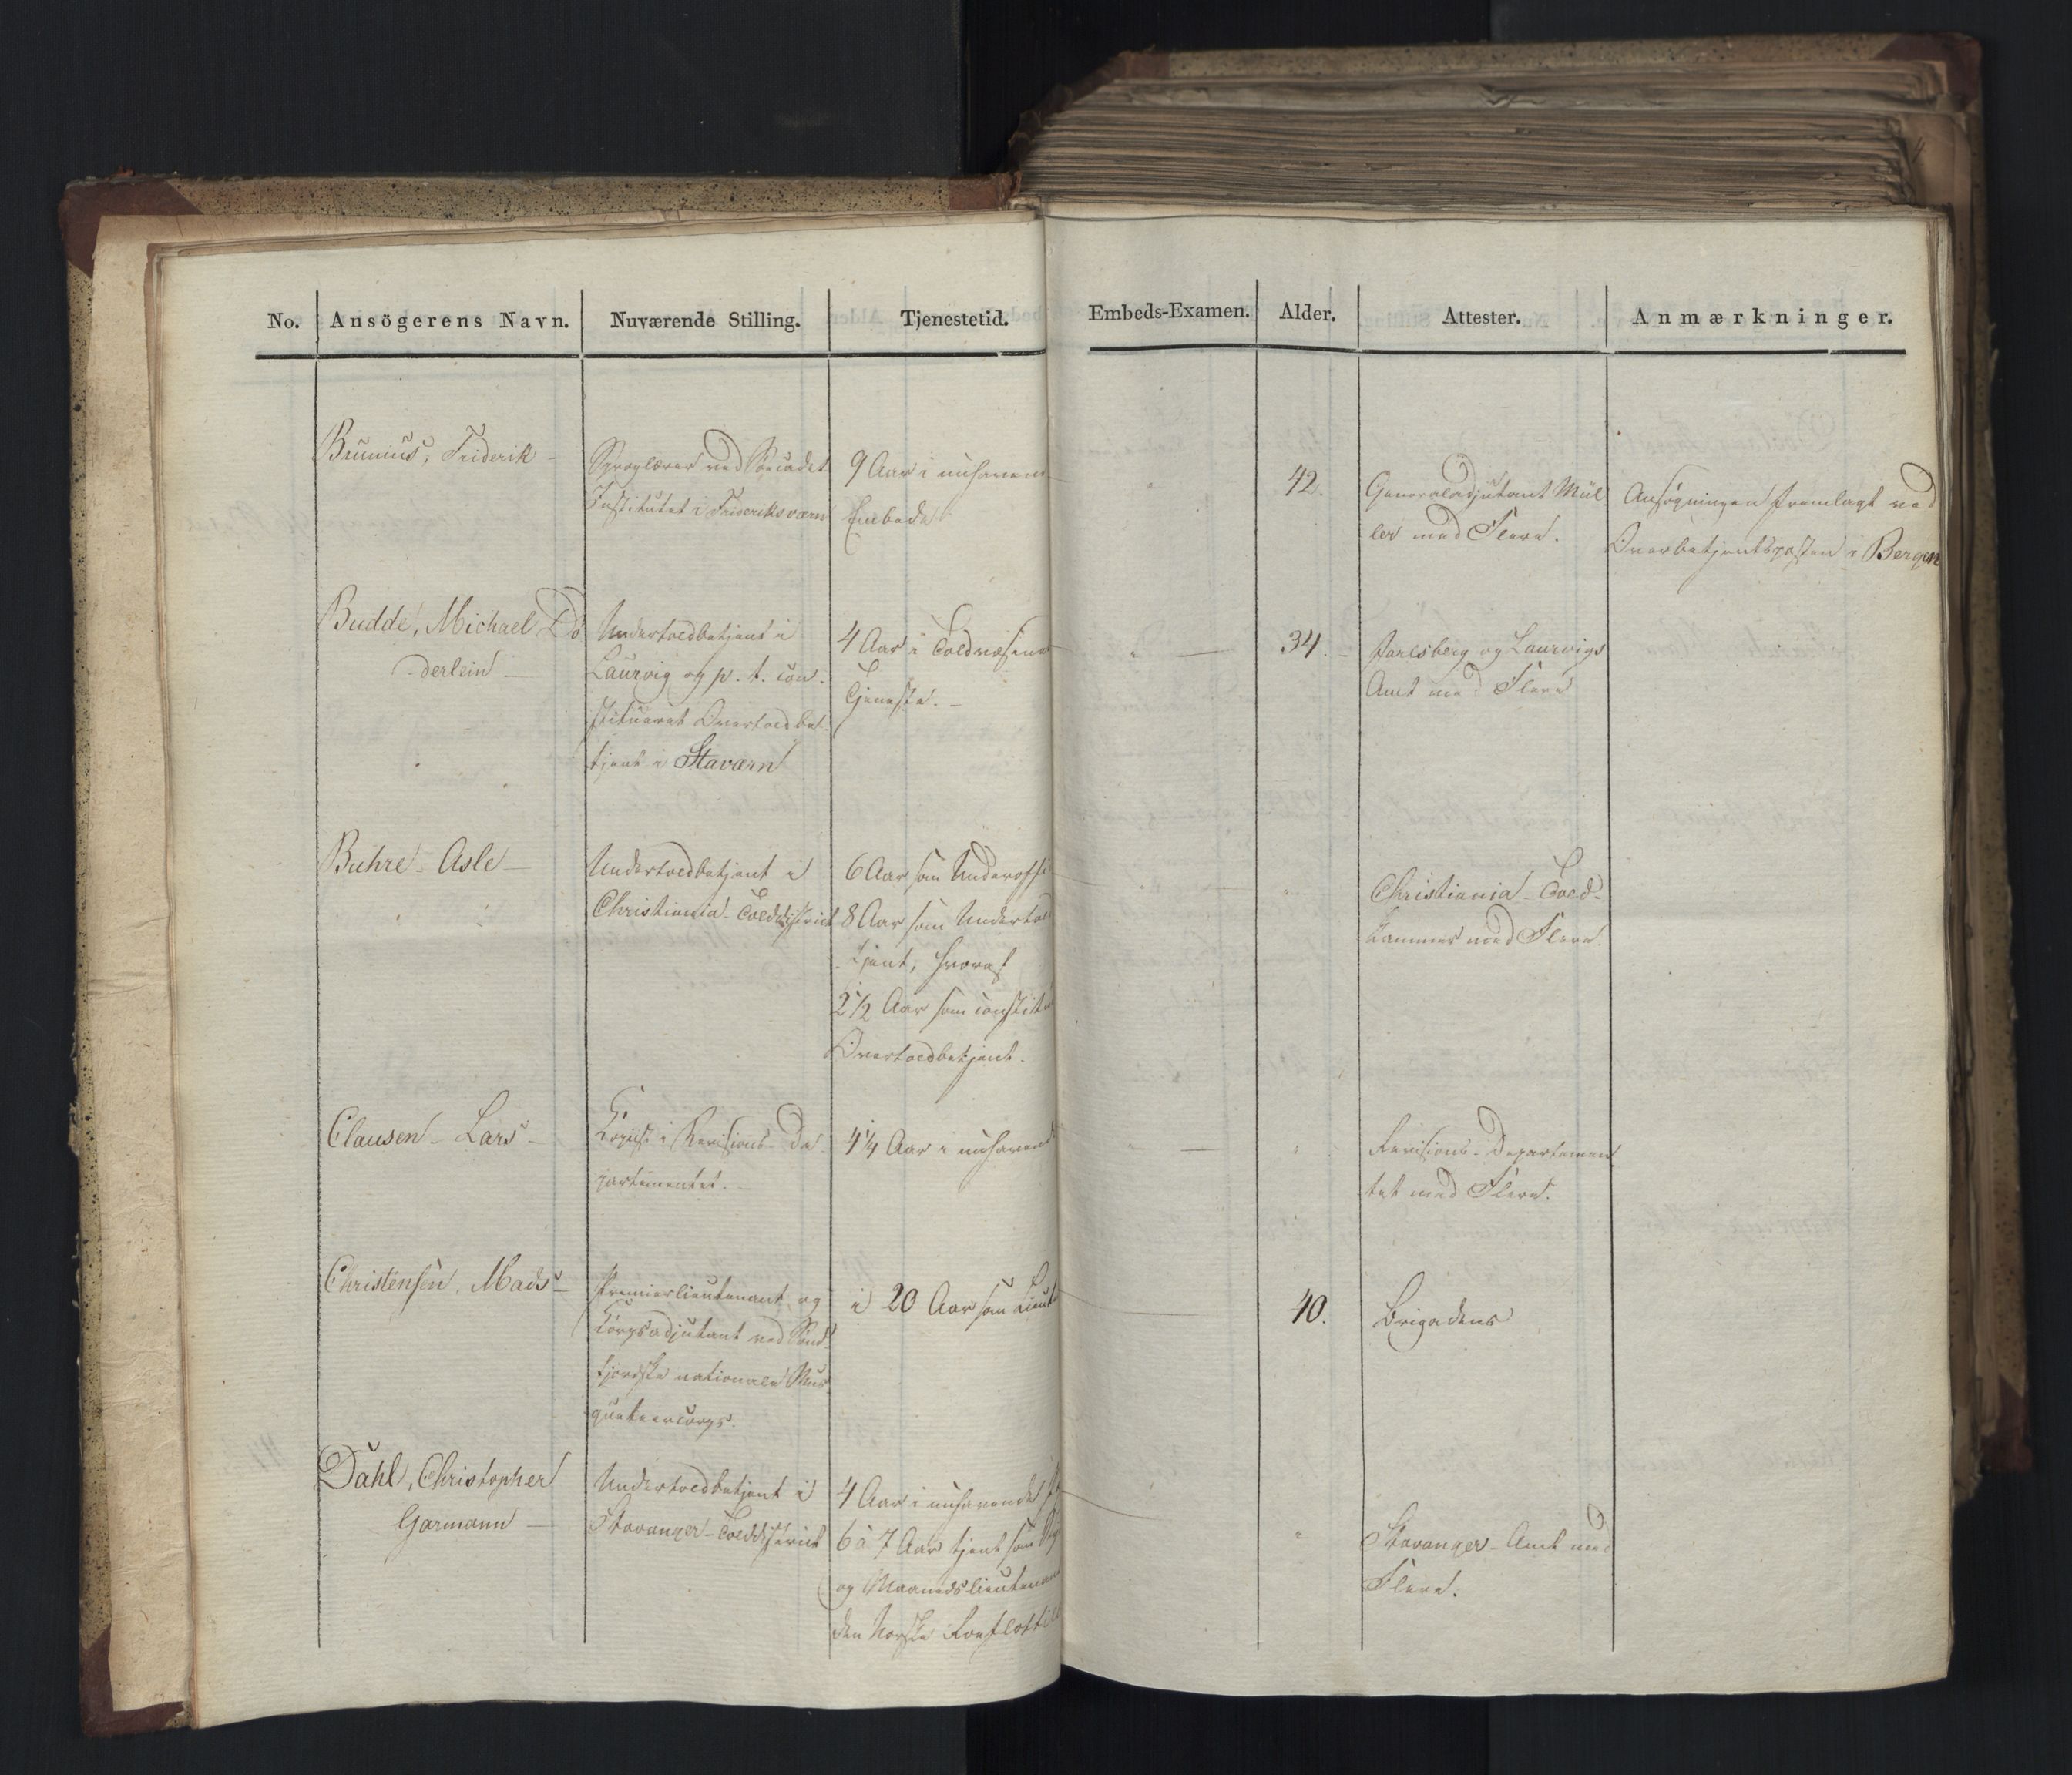 No. Ansögerens Navn. Nuværende Stilling. Tjenestetid. Embeds-Examen. Alder. Attester. Anmærkninger.
Brunius, Friderik -
Sproglærer ved Søecadet
Institutet i Frideriksværn
9 Aar i nuhavende
Embede
"
42.
Generaladjutant Mül
ler med Flere.
Ansøgningen fremlagt ved
Overbetjentsposten i Bergen
Budde, Michael Dö
derlein -
Undertoldbetjent i
Laurvig og p. t. con-
stitueret Overtoldbe-
tjent i Staværn
4 Aar i Toldvæsenets
Tjeneste. -
" —
34.
Jarlsberg og Laurvigs
Amt med Flere
Buhre - Asle -
Undertoldbetjent i
Christiania - Tolddistrict
6 Aar som Underoffi
8 Aar som Undertol
tjent, hvoraf
2 1/2 Aar som constitu
Overtoldbetjent.
" —
"
Christiania - Told-
kammer med Flere.
Clausen - Lars -
Kopiist i Revisions - De
partementet. -
4 1/4 Aar i nuhavende
" —
"
Revisions - Departemen
tet med Flere.
Christensen, Mads -
Premierlieutenant og
Corpsadjutant ved Sönd-
fjordske nationale Mus
queteercorps.
i 20 Aar som Lieut
40.
Brigadens
Dahl, Christopher
Garmann -
Undertoldbetjent i
Stavanger - Tolddistrict
4 Aar i nuhavende
6 à 7 Aar tjent som
og Maanedslieutenant
den Norske Roeflottil
"
Stavanger - Amt med
Flere.